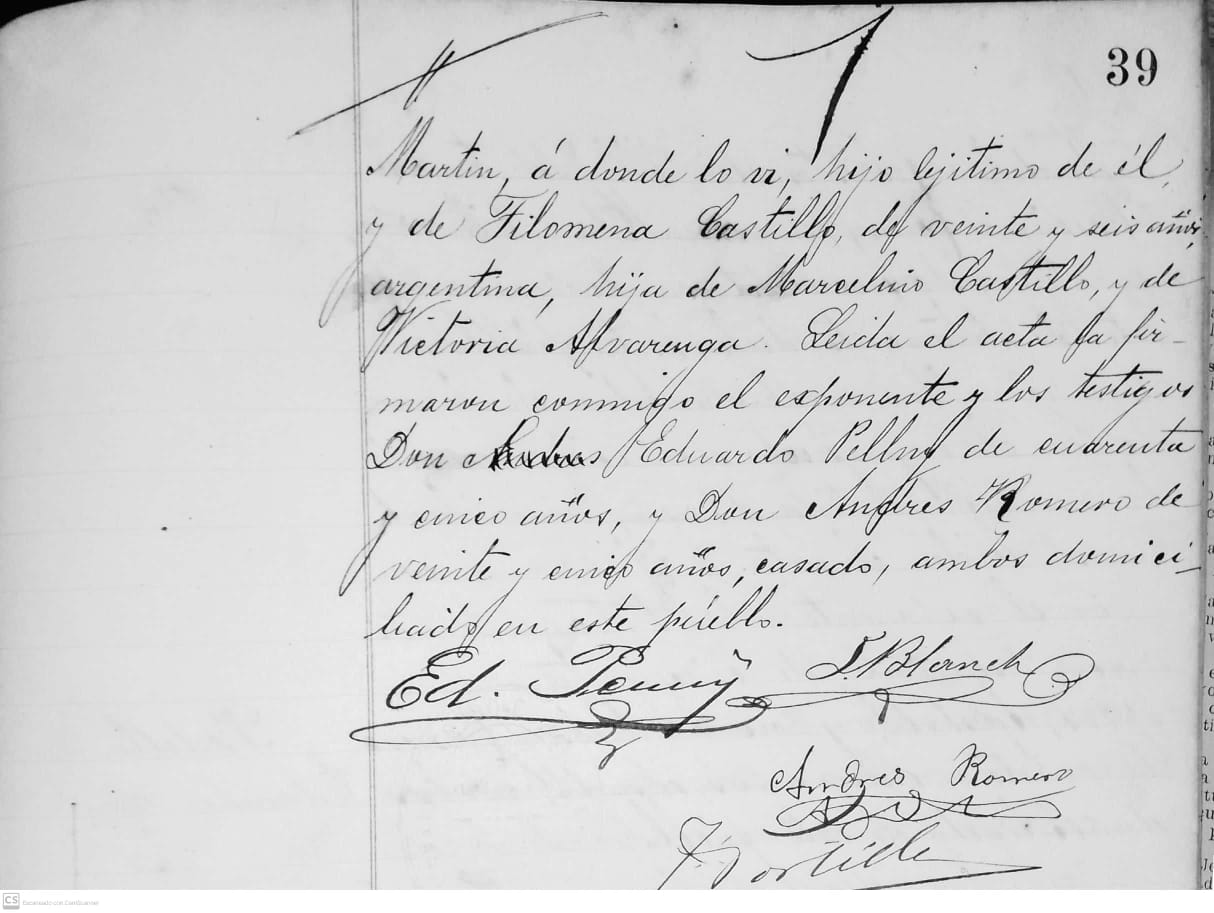 39
Martin, á donde lo vi, hijo lejitimo de él,
y de Filomena Castillo, de veinte y seis años,
argentina, hija de Marcelino Castillo, y de
Victoria Alvarenga. Leida el acta la fir-
maron conmigo el exponente y los testigos
Don Eduardo Pellny de cuarenta
y cinco años, y Don Andres Romero de
veinte y cinco años, casado, ambos domici-
liado en este pueblo.
Ed. Penny J. Blanch
Andres Romero
CS Escaneado con CamScanner